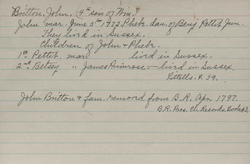 Britton, John, (4th son of Wm.)
John mar. June 5th 1772 Phebe dau. of Benj. Pettit Jun.
They lived in Sussex.
Children of John + Phebe.
1st Pettit. mar. lived in Sussex.
2nd Betsey " James Primrose — lived in Sussex.
P. 39.
John Britton & fam. removed from B.R. Apr. 1797.
B.R. Pres. Ch. Records